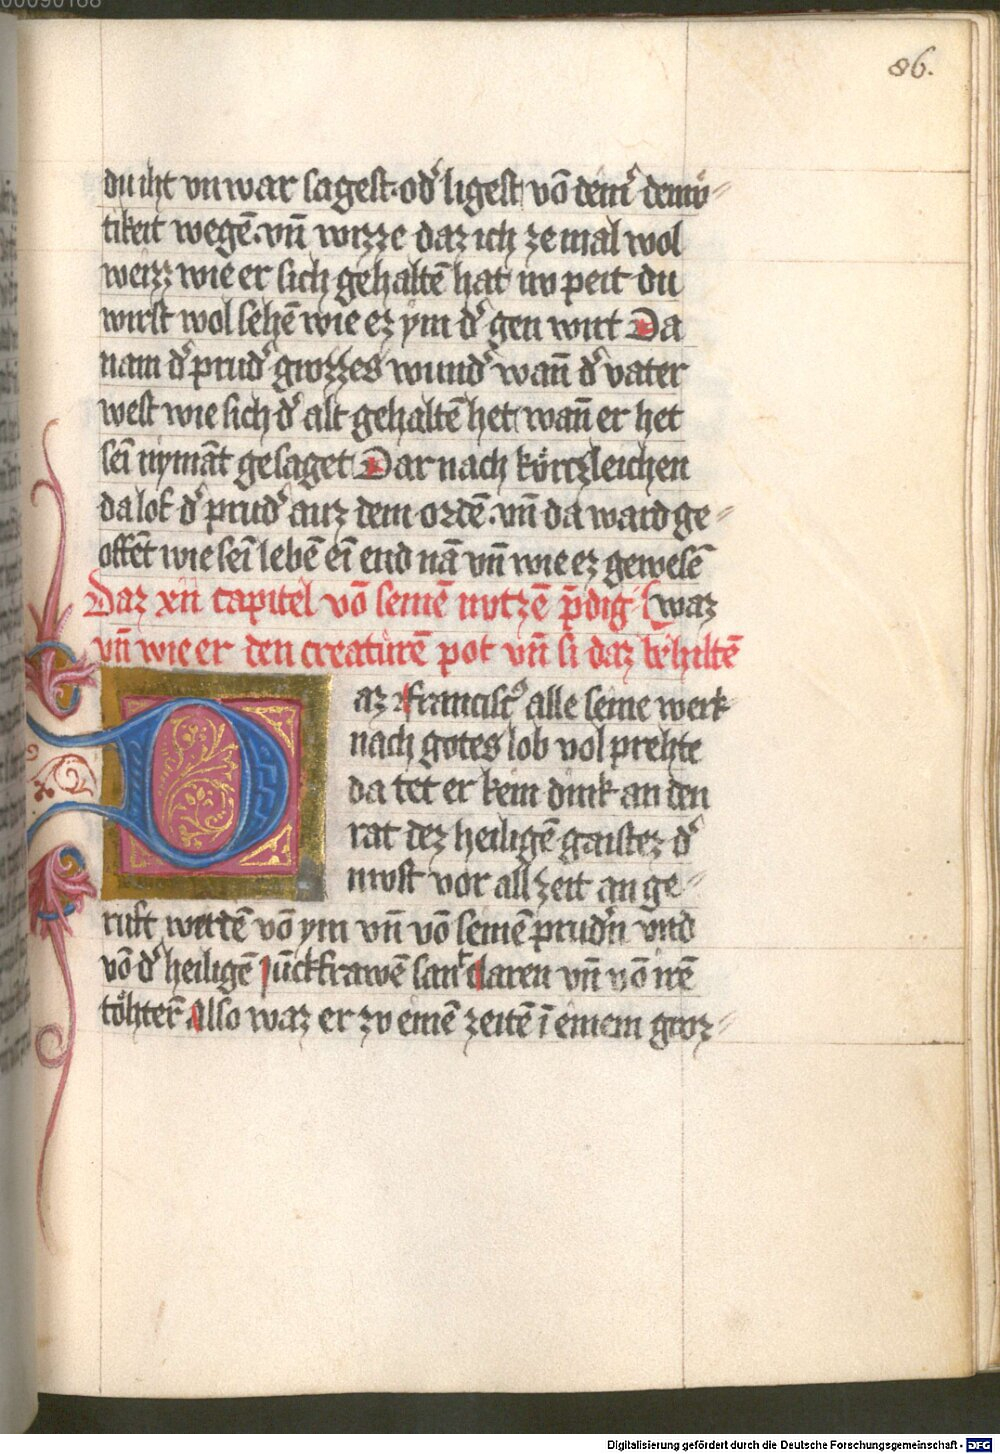 00090168
86.
du iht vn war sagest · od͛ ligest vō dein͛ demv̈-
tikeit wegē · vn̄ wizze daz ich ze mal wol
weizz wie er sich gehaltē hat nv peit du
wirst wol sehē wie ez ym d͛ gen wirt Da
nam d͛ prud͛ grozzes wund͛ wan̄ d͛ vater
west wie sich d͛ alt gehaltē het wan̄ er het
sei nymāt gesaget Dar nach kürtzleichen
da lof d͛ prud͛ auz dem ordē · vn̄ da ward ge-
offēt wie sei lebē ei end nā vn̄ wie ez gewesē
Daz xii capitel vō seinē nutzē p̄dig waz
vn̄ wie er den creaturē pot vn̄ si daz behiltē
Daz Francisc⁹ alle seine werk
nach gotes lob vol prehte
da tet er kein dink an den
rat dez heiligē gaistez d͛
must vor all zeit an ge-
ruft werdē vō ym vn̄ vō seinē prud͛n vnd
vō d͛ heiligē Iūckfrawē sant Claren vn̄ vō irē
töhter̄ Also waz er zv einē zeitē ī einem groz-
Digitalisierung gefördert durch die Deutsche Forschungsgemeinschaft - DFG